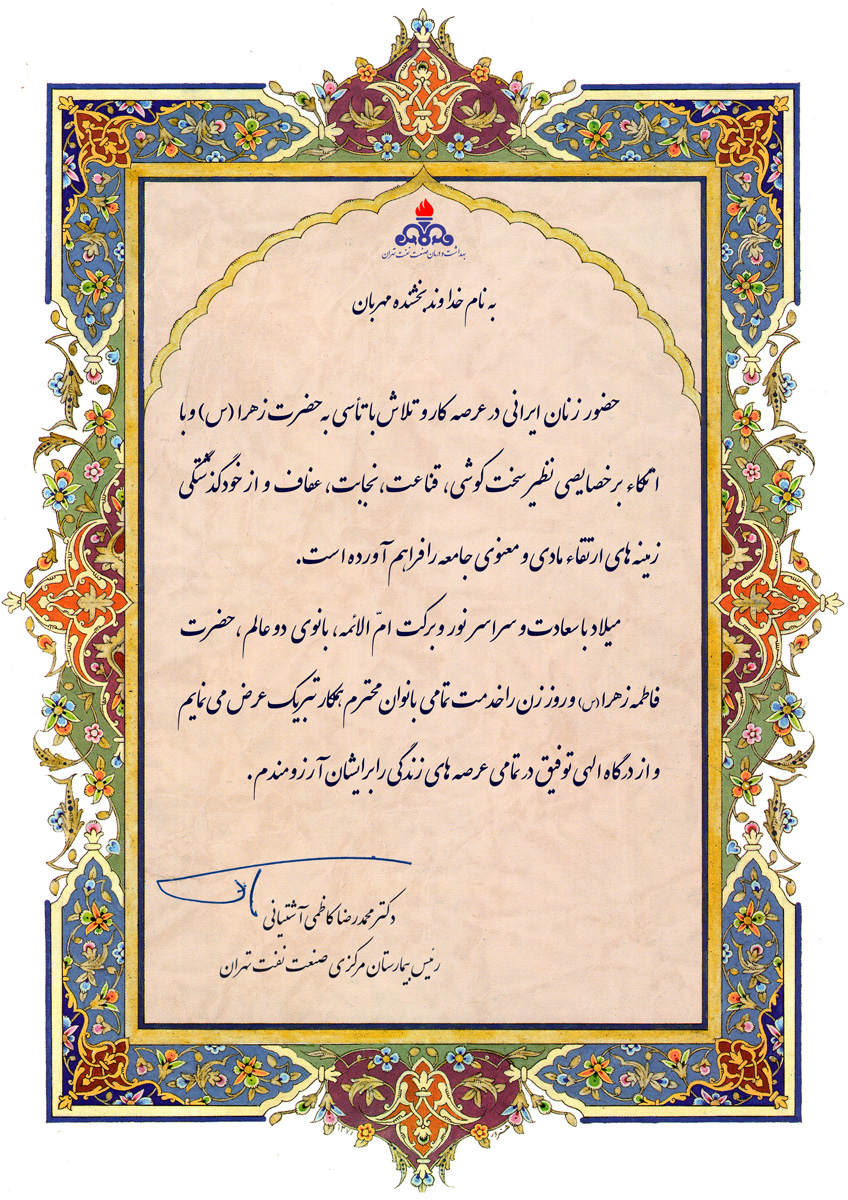 بهداشت و درمان صنعت نفت تهران
به نام خداوند بخشنده مهربان
حضور زنان ایرانی در عرصه کار و تلاش با تأسی به حضرت زهرا (س) و با
اتکاء بر خصایصی نظیر سخت کوشی، قناعت، نجابت، عفاف و از خودگذشتگی
زمینه های ارتقاء مادی و معنوی جامعه را فراهم آورده است.
میلاد با سعادت و سراسر نور و برکت امّ الائمه، بانوی دو عالم، حضرت
فاطمه زهرا (س) و روز زن را خدمت تمامی بانوان محترم همکار تبریک عرض می نمایم
و از درگاه الهی توفیق در تمامی عرصه های زندگی را برایشان آرزومندم.
دکتر محمدرضا کاظمی آشتیانی
رئیس بیمارستان مرکزی صنعت نفت تهران